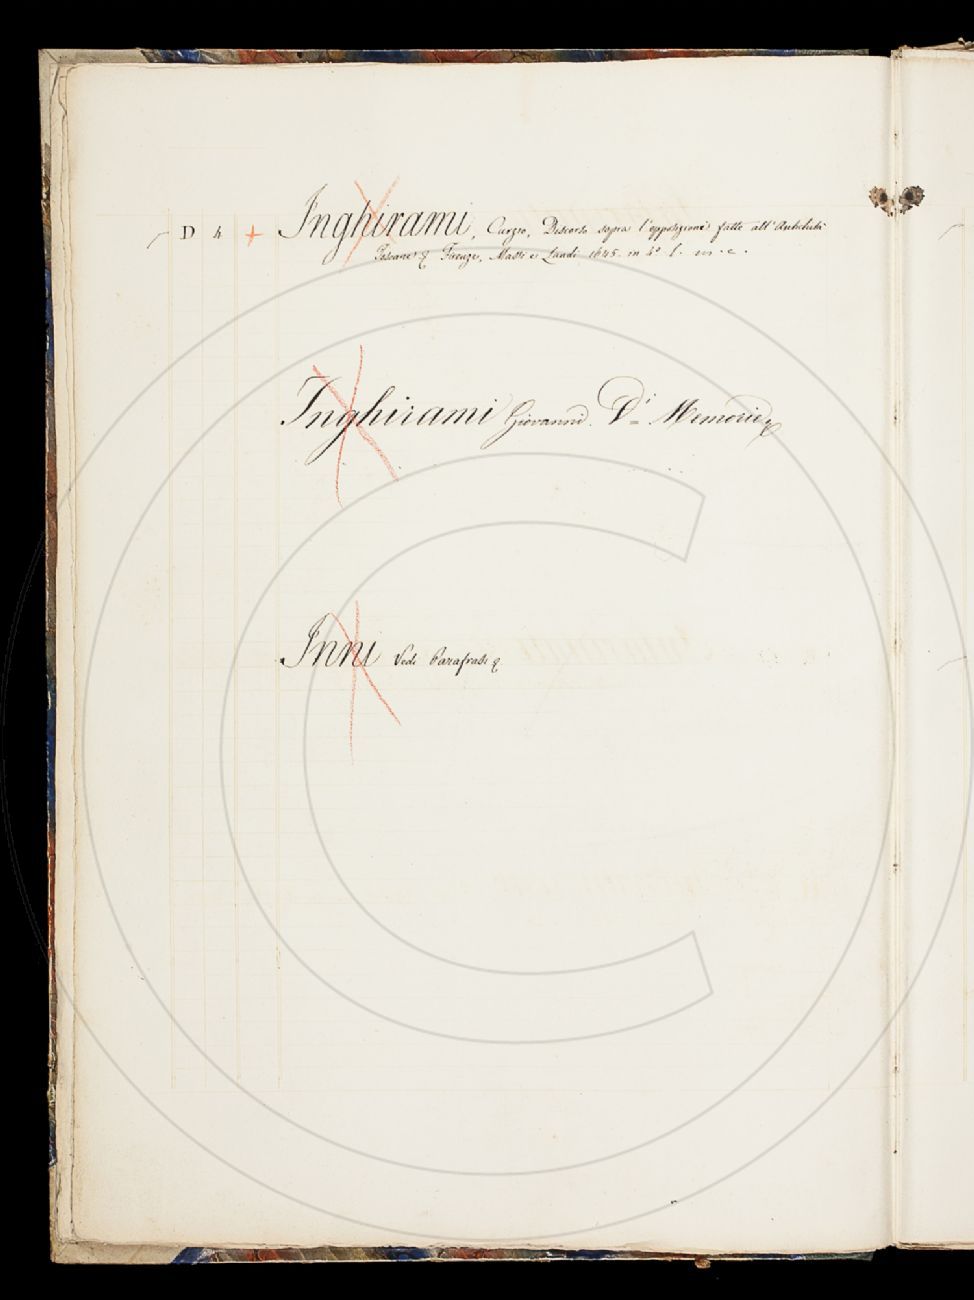 D 4 + Inghirami, Curzio, Discorso sopra l'opposizioni fatte all'Antichità
Toscane & Firenze, Massi e Landi 1645. in 4° l. m. c.
Inghirami Giovanni. Di Memorie &
Inni Vedi Parafrasi &